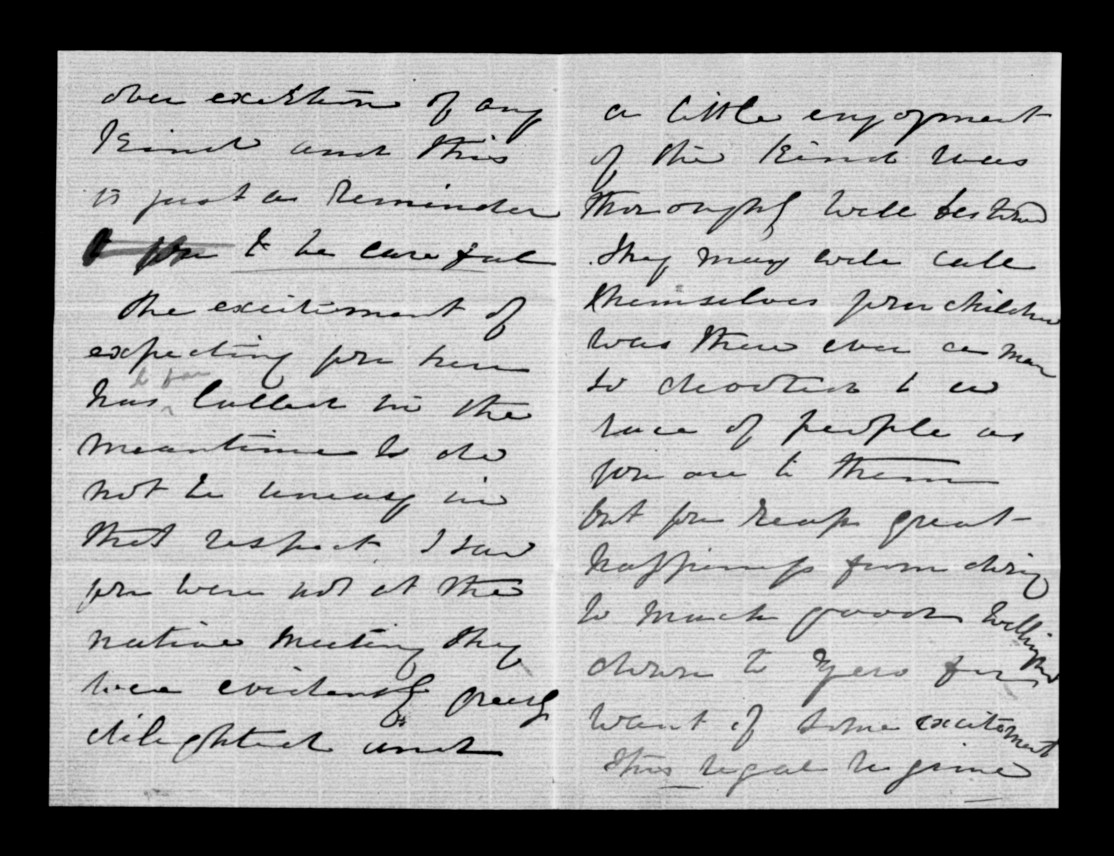 over exertion of any
kind and this
is just a reminder
to be careful
The excitement of
expecting you here
so far
has lulled in the
meantime so do
not be uneasy in
that respect. I saw
you were not at the
native meeting they
were evidently greatly
delighted and
a little enjoyment
of the kind was
thoroughly well bestowed
They may well call
themselves your children
was there ever a man
so devoted to a
race of people as
you are to them
but you reap great
happiness from doing
so much good Wellington
down to Zero for
want of some excitement
this legal regime